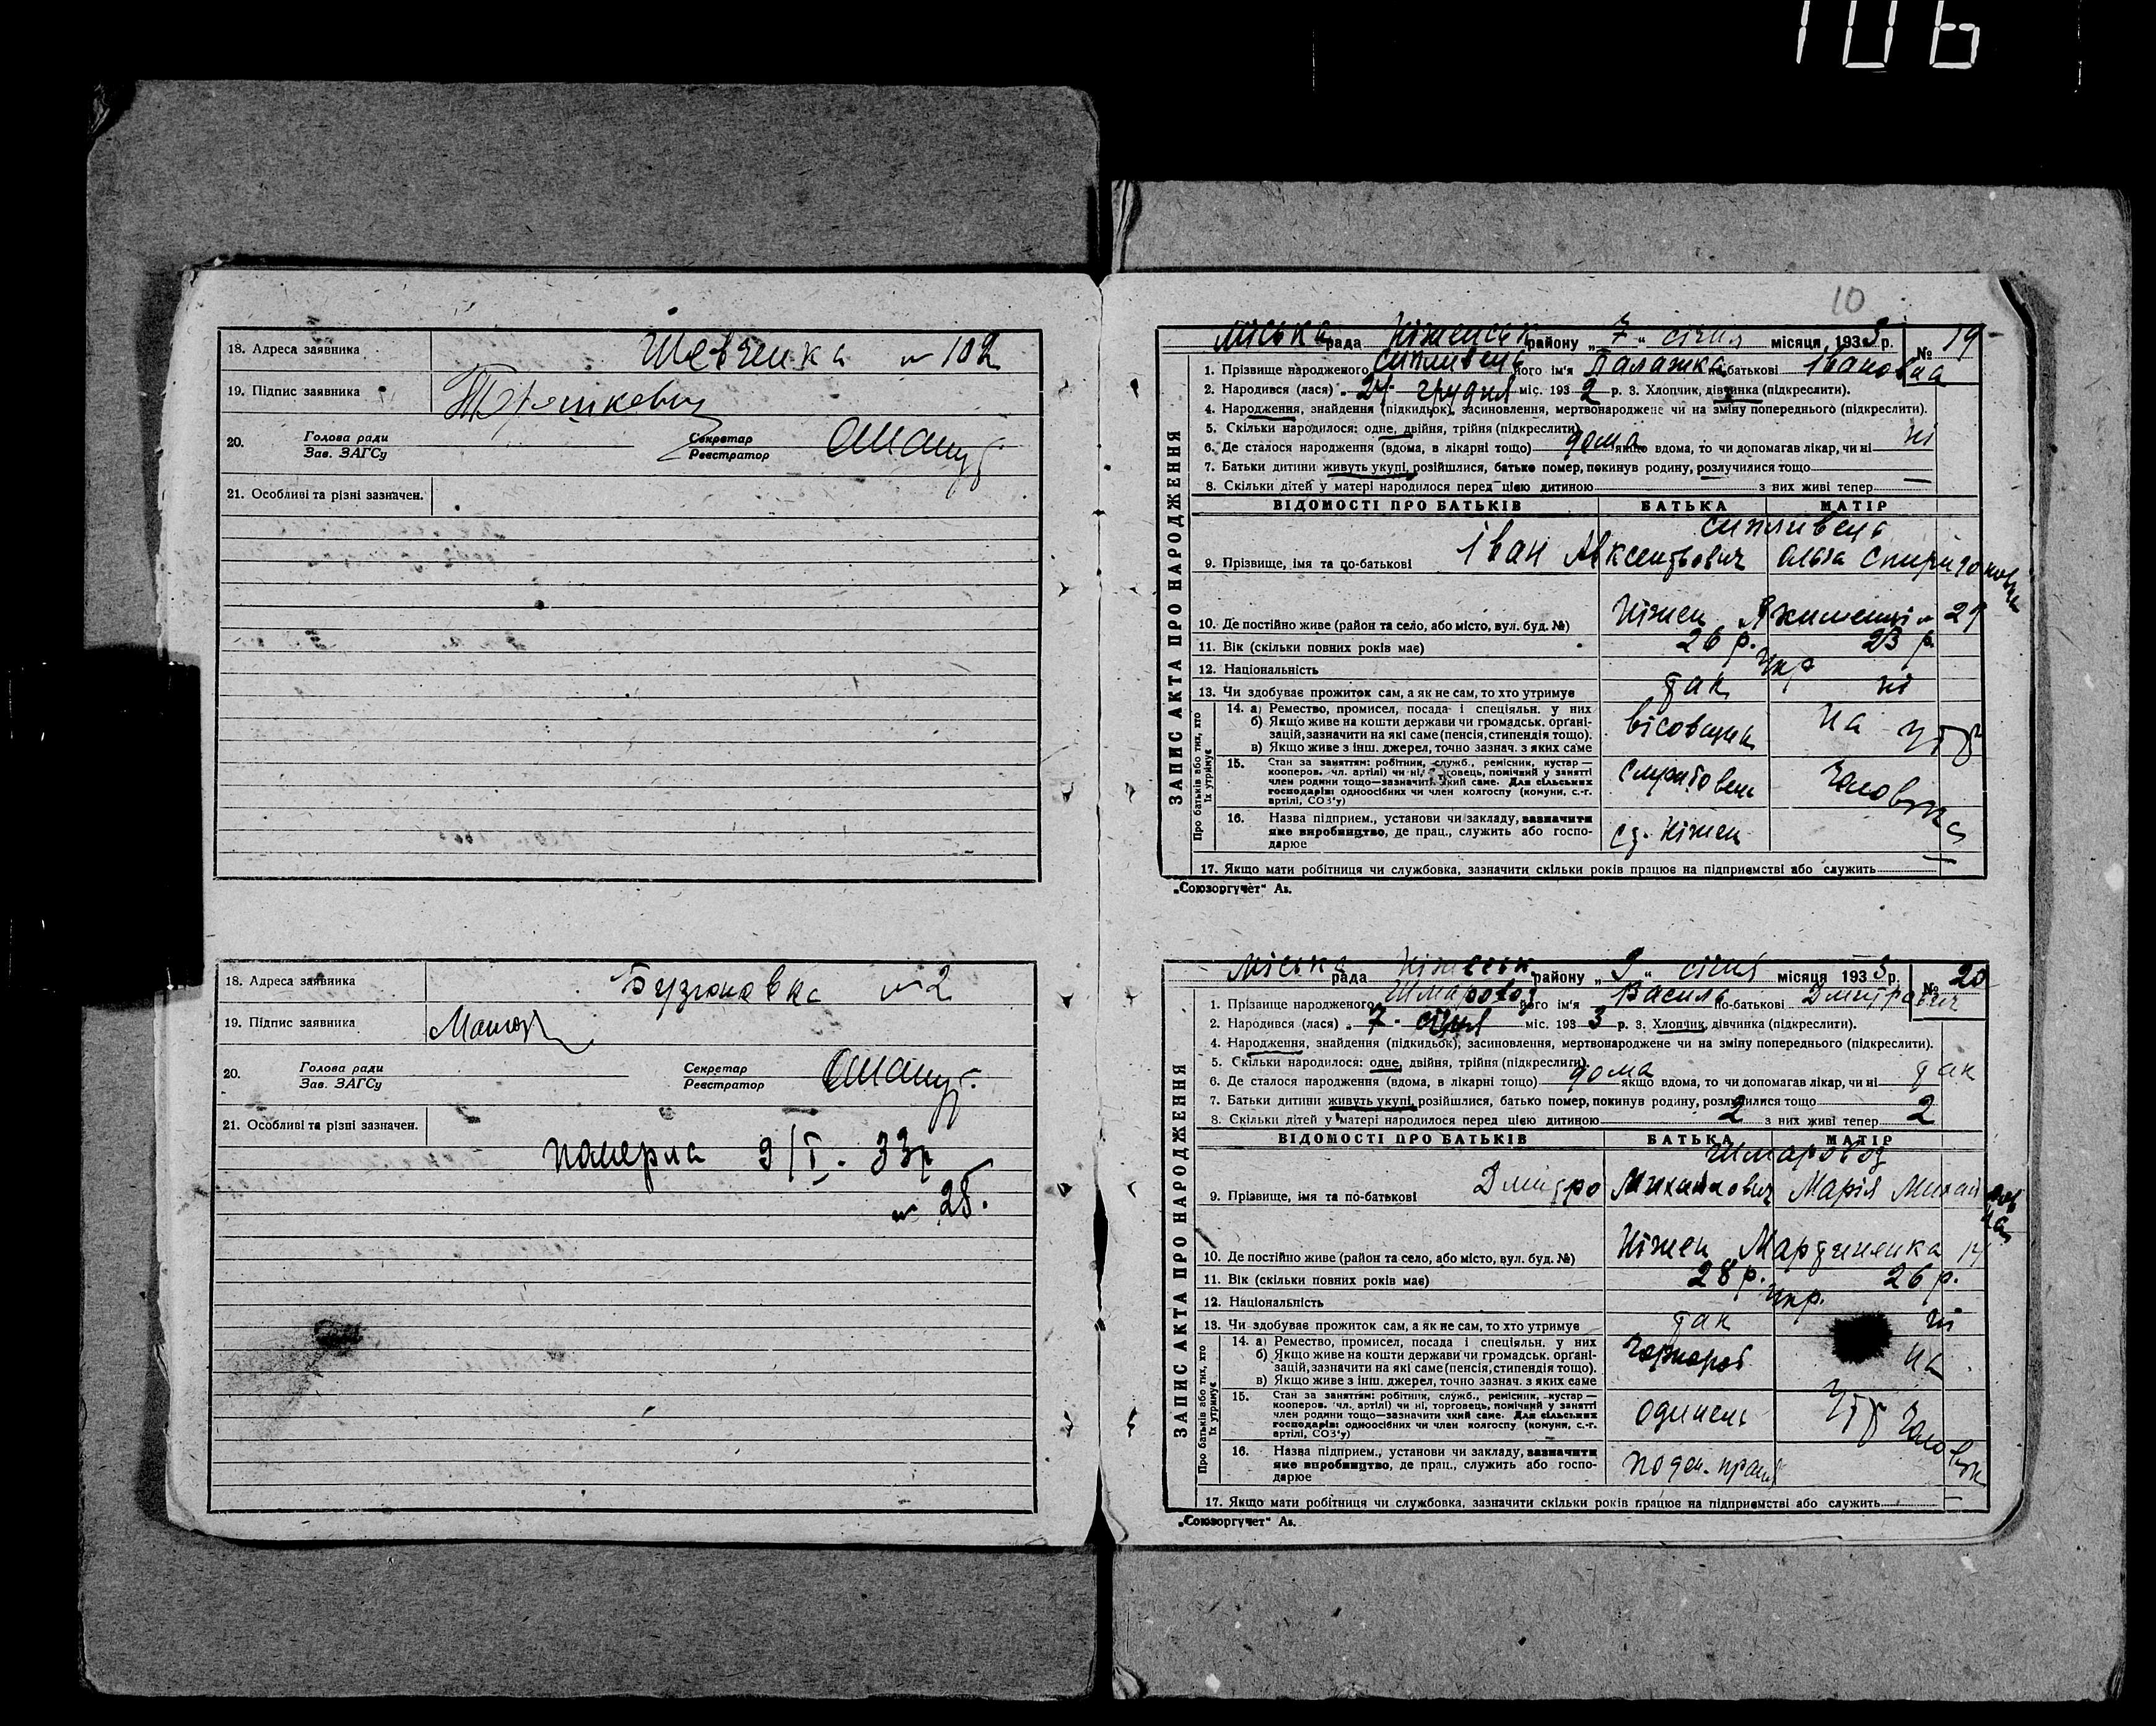 106
18. Адреса заявника Шевченка № 102
19. Підпис заявника
20. Голова ради Секретар
Зав. ЗАГСу Реєстратор
21. Особливі та різні зазначен.
18. Адреса заявника № 2
19. Підпис заявника
20. Голова ради Секретар
Зав. ЗАГСу Реєстратор
21. Особливі та різні зазначен.
померла 9/I. 33р
№ 25.
10
Міська рада Ніженськ району „ 7 “ січня місяця 193 3 р. № 19
1. Прізвище народженого його ім'я Палажка по-батькові Івановна
2. Народився (лася) „ 24 грудня міс. 193 2 р. 3. Хлопчик, дівчинка (підкреслити).
4. Народження, знайдення (підкидьок), засиновлення, мертвонароджене чи на зміну попереднього (підкреслити).
5. Скільки народилося: одне, двійня, трійня (підкреслити)
6. Де сталося народження (вдома, в лікарні тощо) дома якщо вдома, то чи допомагав лікар, чи ні ні
7. Батьки дитини живуть укупі, розійшлися, батько помер, покинув родину, розлучилися тощо
8. Скільки дітей у матері народилося перед цією дитиною — з них живі тепер —
ЗАПИС АКТА ПРО НАРОДЖЕННЯ
ВІДОМОСТІ ПРО БАТЬКІВ БАТЬКА МАТІР
9. Прізвище, імя та по-батькові Іван Авксентьович Ольга Спиридоновна
10. Де постійно живе (район та село, або місто, вул. буд. №) Ніжен
11. Вік (скільки повних років має) 26 р. 23 р.
12. Національність Укр
13. Чи здобуває прожиток сам, а як не сам, то хто утримує так ні
Про батьків або тих, хто їх утримує
14. а) Ремество, промисел, посада і спеціяльн. у них На утр
б) Якщо живе на кошти держави чи громадськ. організацій, зазначити на які саме (пенсія, стипендія тощо).
в) Якщо живе з інш. джерел, точно зазнач. з яких саме
15. Стан за заняттям: робітник, служб., ремісник, кустар —
кооперов. чл. артілі) чи ні, торговець, помічний у занятті
член родини тощо—зазначити який саме. Для сільських
господарів: одноосібних чи член колгоспу (комуни, с.-г.
артілі, СОЗ'у)
16. Назва підприєм., установи чи закладу, зазначити
яке виробництво, де прац., служить або господарює ст. Ніжен
17. Якщо мати робітниця чи службовка, зазначити скільки років працює на підприємстві або служить —
„Союзоргучет“ Ав.
Міська рада Ніженськ району „ 9 “ січня місяця 193 3 р. № 20
1. Прізвище народженого Шмаровоз його ім'я Василь по-батькові Дмитрович
2. Народився (лася) „ 7 січня міс. 193 3 р. 3. Хлопчик, дівчинка (підкреслити).
4. Народження, знайдення (підкидьок), засиновлення, мертвонароджене чи на зміну попереднього (підкреслити).
5. Скільки народилося: одне, двійня, трійня (підкреслити)
6. Де сталося народження (вдома, в лікарні тощо) дома якщо вдома, то чи допомагав лікар, чи ні так
7. Батьки дитини живуть укупі, розійшлися, батько помер, покинув родину, розлучилися тощо
8. Скільки дітей у матері народилося перед цією дитиною 2 з них живі тепер 2
ЗАПИС АКТА ПРО НАРОДЖЕННЯ
ВІДОМОСТІ ПРО БАТЬКІВ БАТЬКА МАТІР
Шмаровоз
9. Прізвище, імя та по-батькові Дмитро Михайлович Марія Михайловна
10. Де постійно живе (район та село, або місто, вул. буд. №) Ніжен Мартиненка 14
11. Вік (скільки повних років має) 28 р. 26 р.
12. Національність Укр.
13. Чи здобуває прожиток сам, а як не сам, то хто утримує так ні
Про батьків або тих, хто їх утримує
14. а) Ремество, промисел, посада і спеціяльн. у них Чорнороб На
б) Якщо живе на кошти держави чи громадськ. організацій, зазначити на які саме (пенсія, стипендія тощо).
в) Якщо живе з інш. джерел, точно зазнач. з яких саме
15. Стан за заняттям: робітник, служб., ремісник, кустар — одинець утр
кооперов. чл. артілі) чи ні, торговець, помічний у занятті
член родини тощо—зазначити який саме. Для сільських
господарів: одноосібних чи член колгоспу (комуни, с.-г.
артілі, СОЗ'у)
16. Назва підприєм., установи чи закладу, зазначити
яке виробництво, де прац., служить або господарює
17. Якщо мати робітниця чи службовка, зазначити скільки років працює на підприємстві або служить —
„Союзоргучет“ Ав.